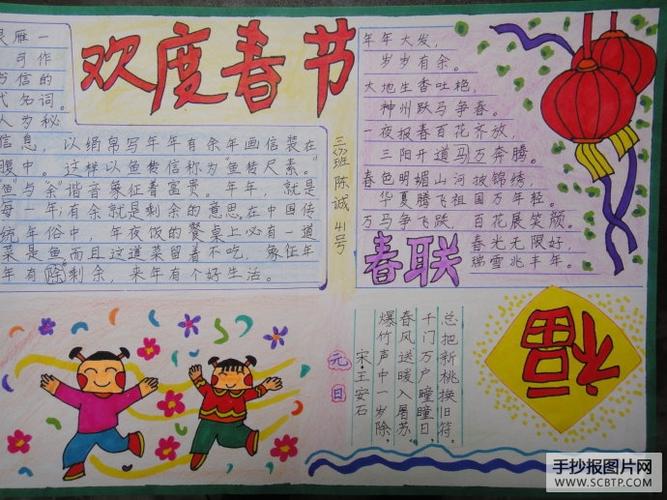 欢度春节
雁一
可作
书信的
代名词。
人为秘
信息，以绢帛写年年有余年画信装在
腹中。这样以鱼传信称为"鱼传尺素。"
"鱼"与"余"谐音象征着富贵。年年，就是
每一年，有余就是剩余的意思，在中国传
统年俗中，年夜饭的餐桌上必有一道
菜是鱼，而且这道菜留着不吃，象征年
年有除剩余，来年有个好生活。
三班 陈诚 41号
年年大发，
岁岁有余。
大地生香吐艳，
神州跃马争春。
一夜报春百花齐放，
三阳开道马万奔腾。
春色明媚山河披锦绣，
华夏腾飞祖国万年轻。
万马争飞跃，百花展笑颜。
春光无限好，
瑞雪兆丰年。
春联
元日
宋·王安石
爆竹声中一岁除，
春风送暖入屠苏。
千门万户瞳瞳日，
总把新桃换旧符。
福
手抄报图片网
WWW.SCBTP.COM